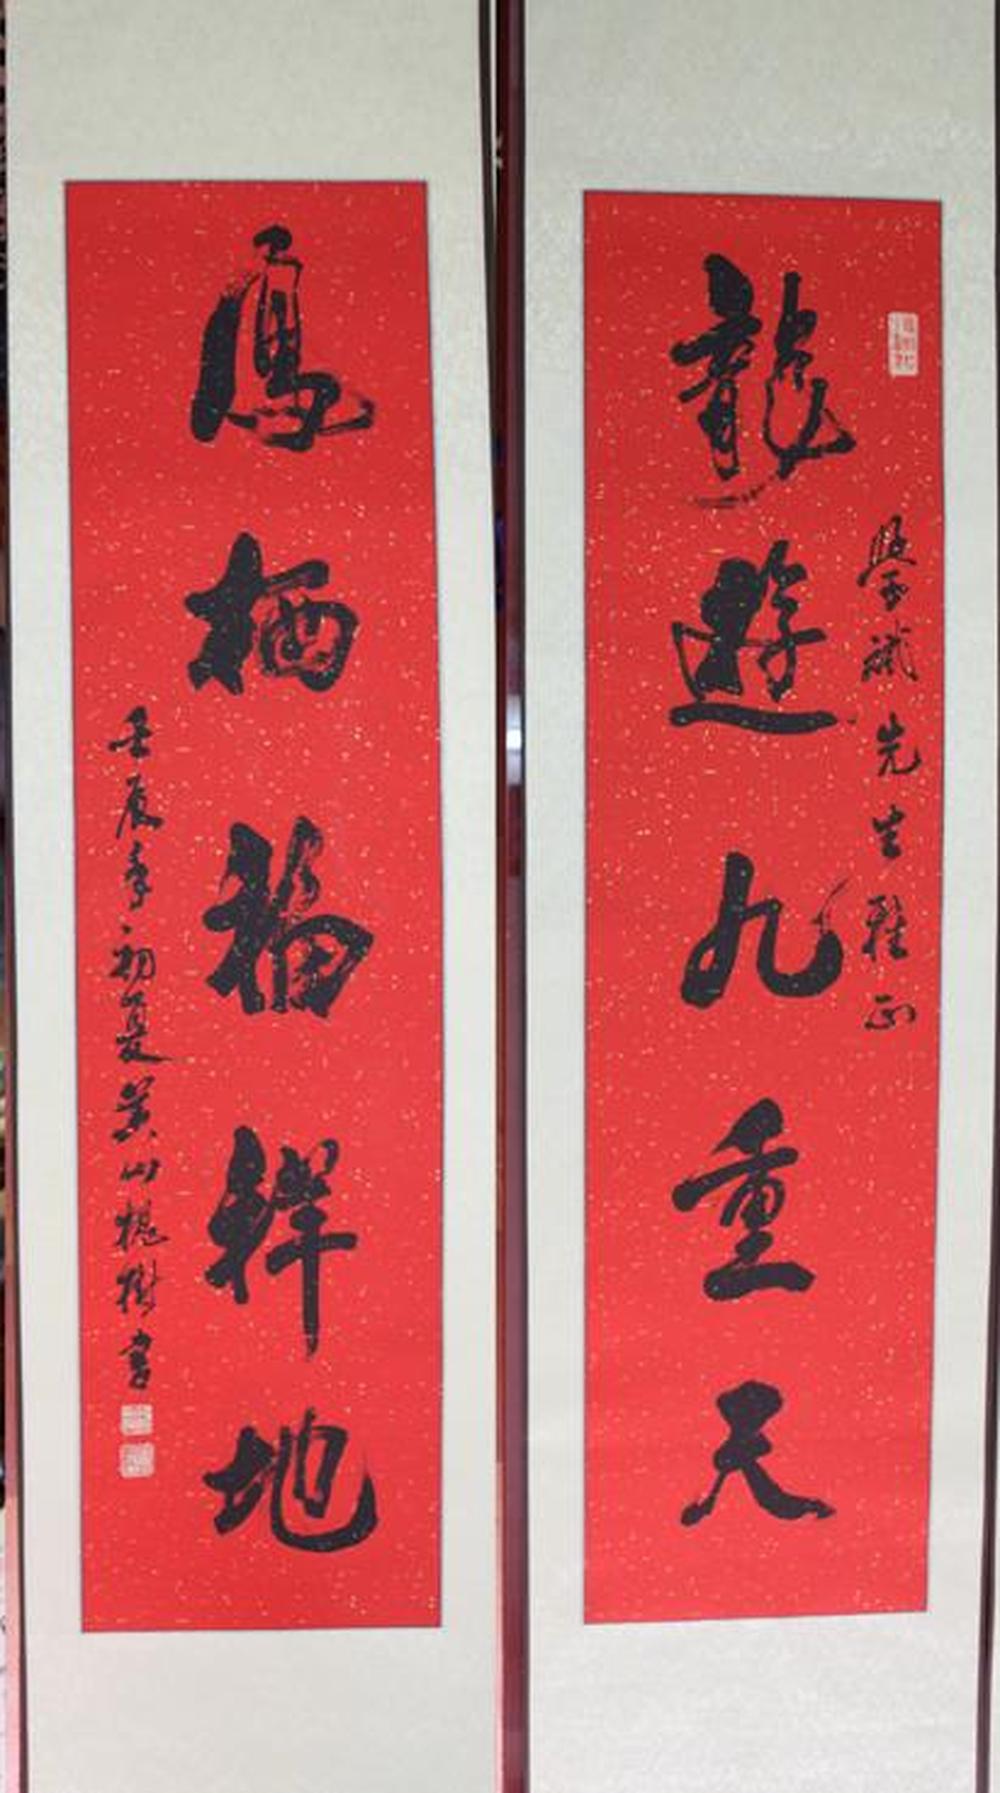 龍遊九重天
學斌先生雅正
鳳栖福祥地
壬辰年初夏黄山槐樹書